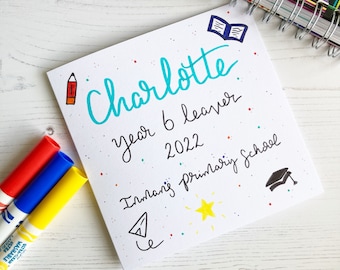 Charlotte
Year 6 leaver
2022
Inmans primary School